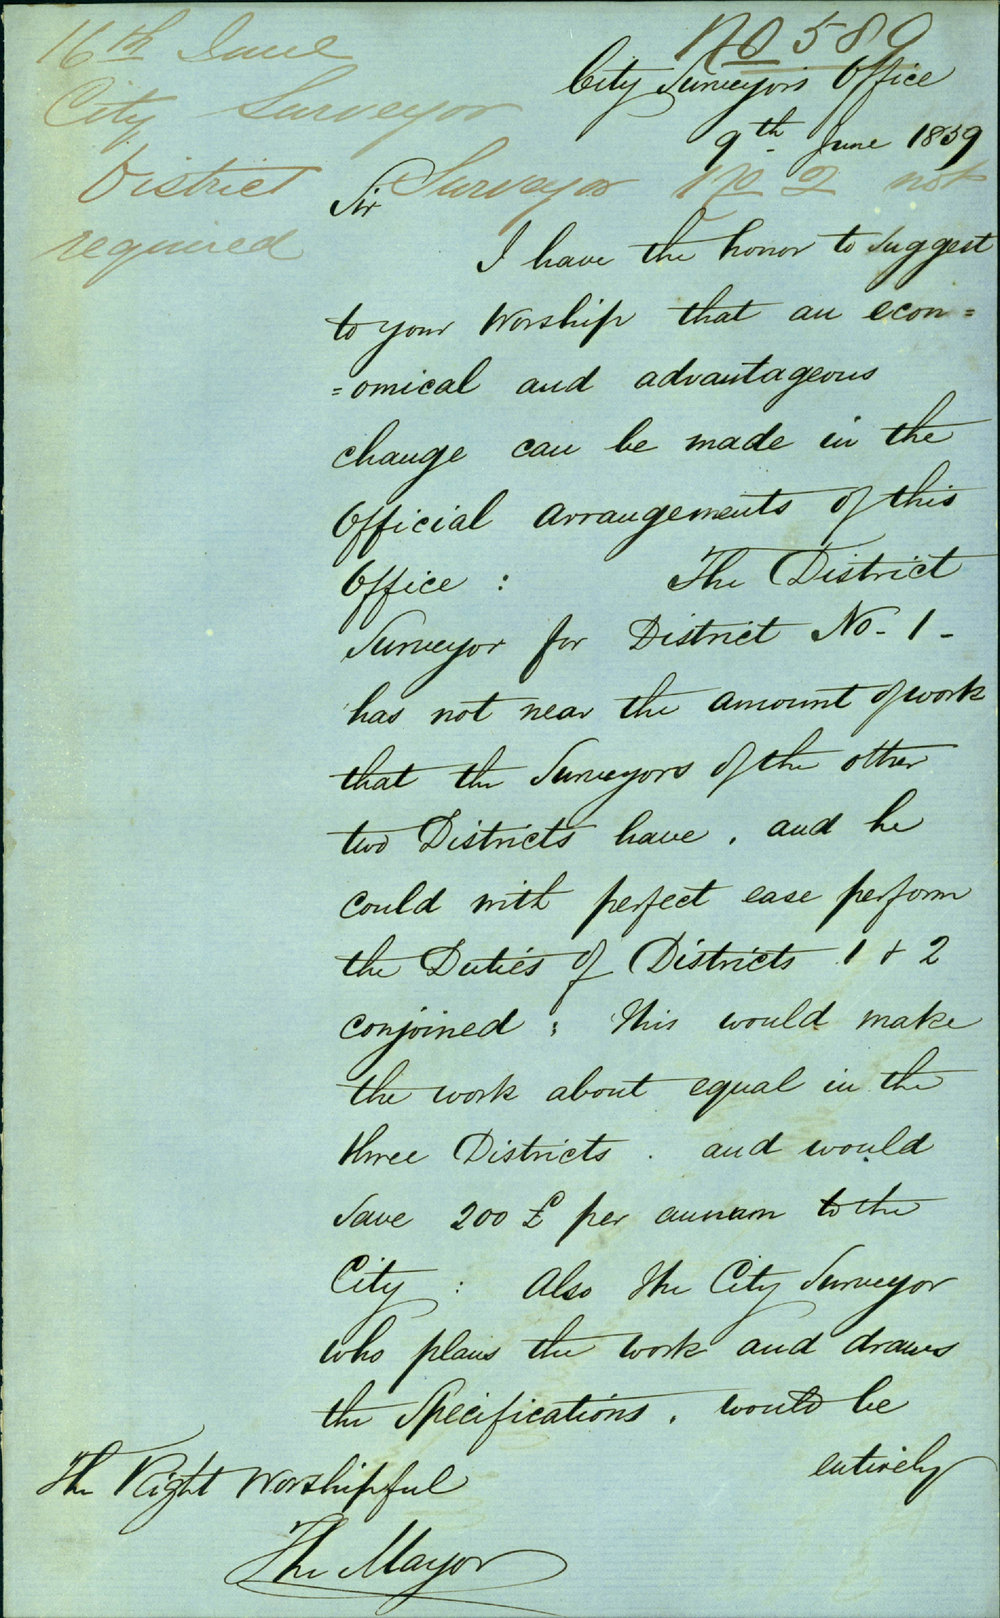 16th June
No 589
City Surveyor
District Surveyor No 2 not
required
City Surveyors Office
9th June 1859
Sir
I have the honor to suggest
to your Worship that an econ=
=omical and advantageous
change can be made in the
Official arrangements of this
Office : The District
Surveyor for District No- 1 -
has not near the amount of work
that the Surveyors of the other
two Districts have, and he
could with perfect ease perform
the Duties of Districts 1 + 2
conjoined ; This would make
the work about equal in the
three Districts . and would
save 200 £ per annum to the
City : Also the City Surveyor
who plans the work and draws
the Specifications, would be
entirely
The Right Worshipful
The Mayor